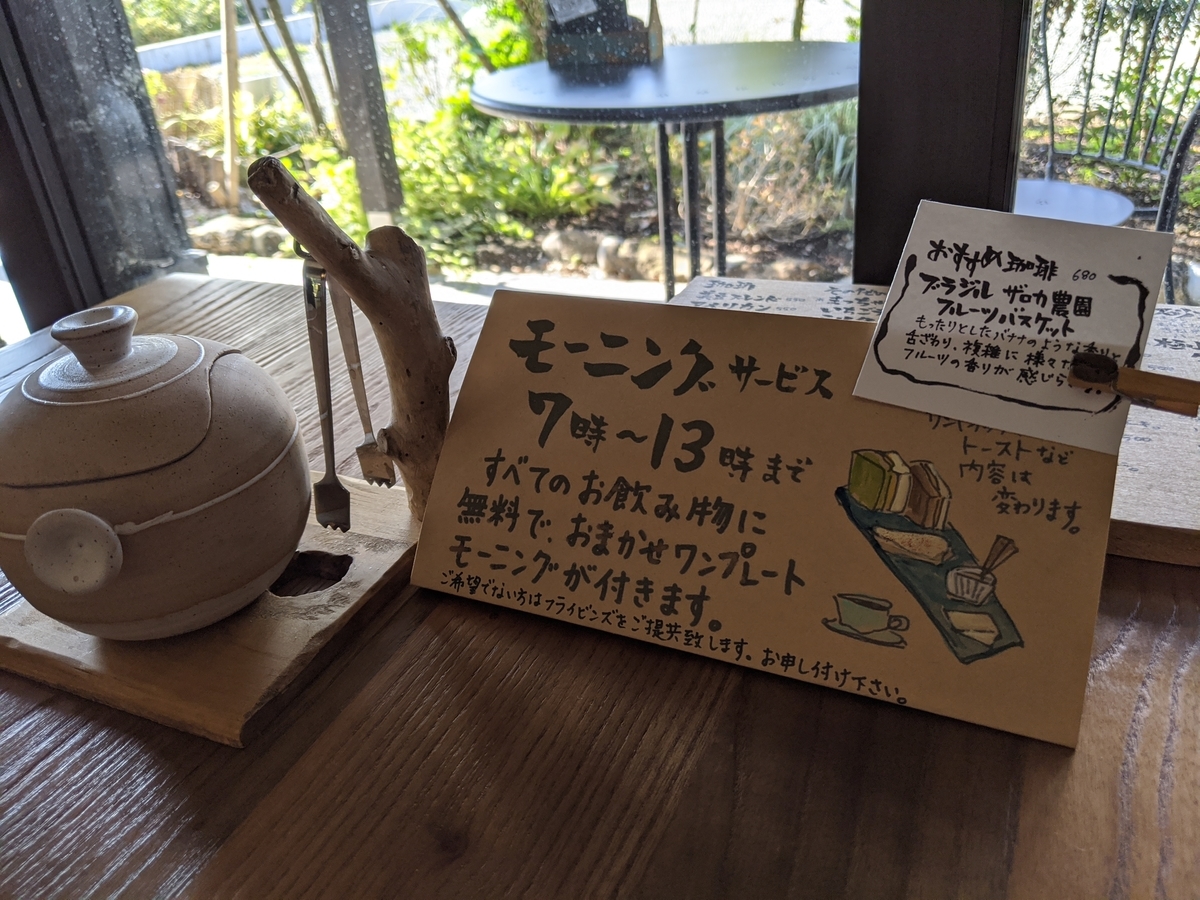 モーニングサービス
7時～13時まで
すべてのお飲み物に
無料で、おまかせワンプレート
モーニングが付きます。
ご希望でない方はフライビンズをご提供致します。お申し付け下さい。
トーストなど
内容は
変わります。
おすすめ珈琲 680
ブラジル ザロカ農園
フルーツバスケット
もったりとしたバナナのような香りと
舌ざわり、複雑に様々な
フルーツの香りが感じら
珈琲